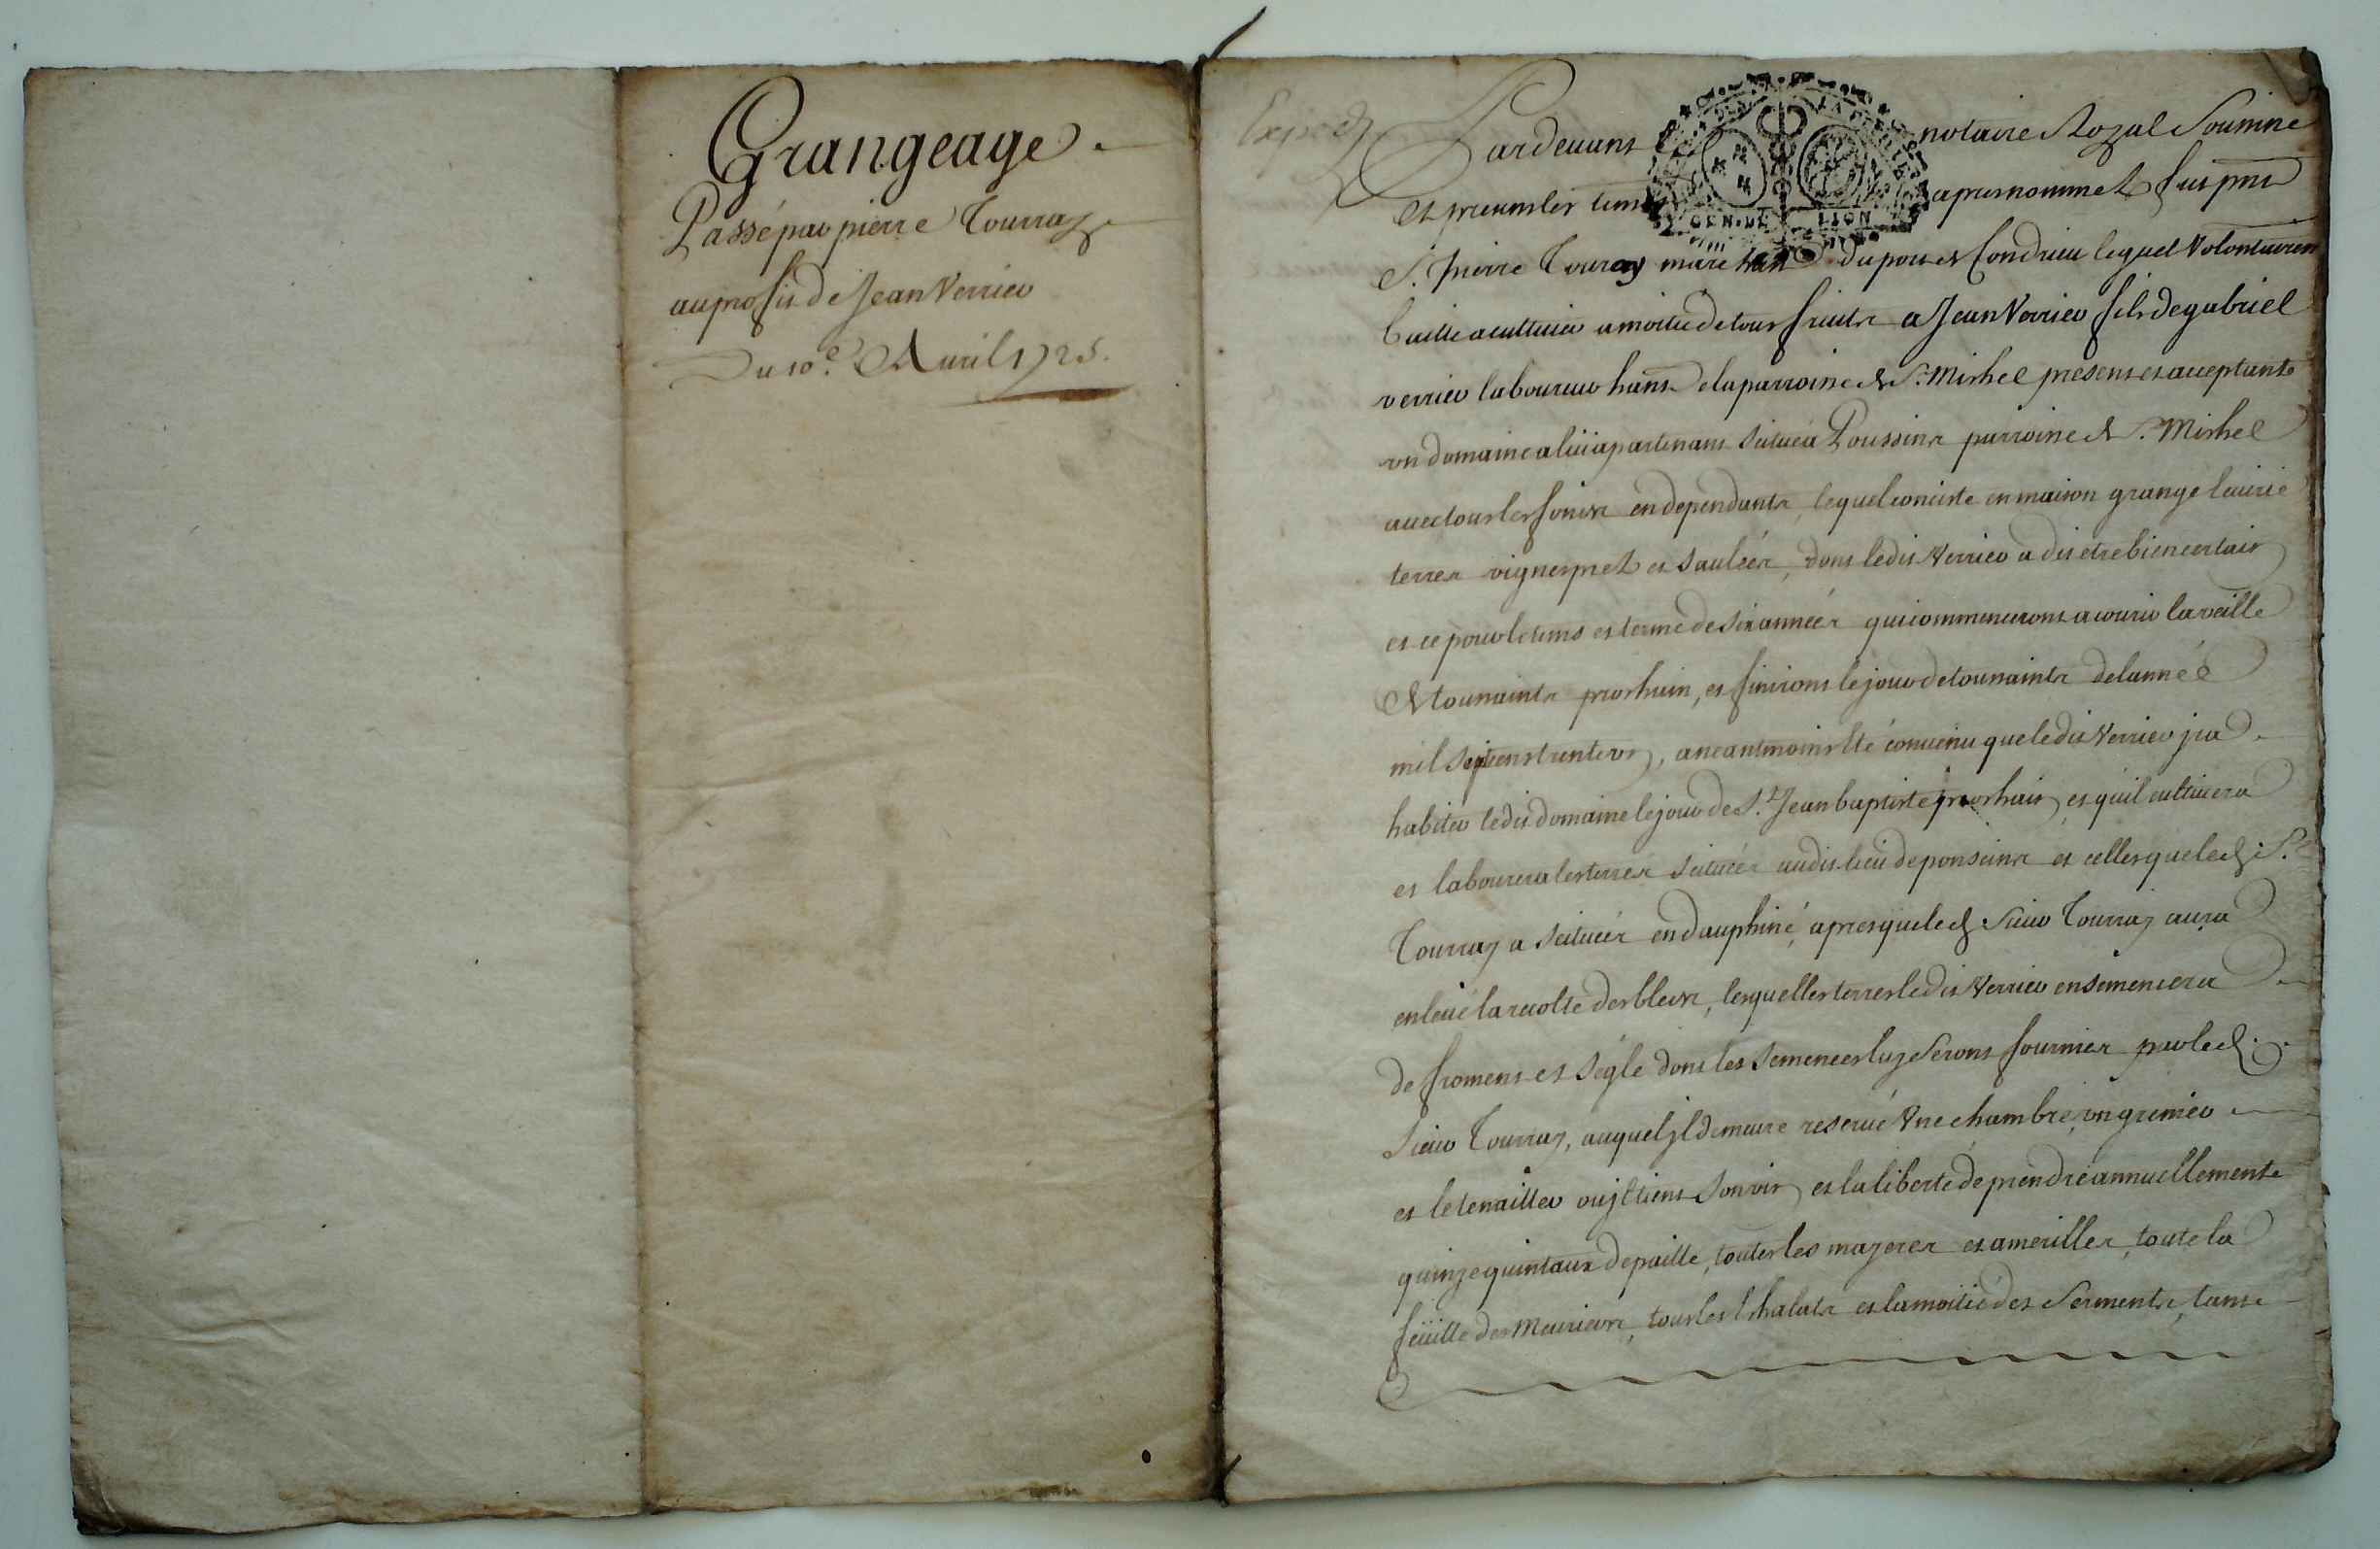 Grangeage
Passé par pierre Tourray
au profit de Jean Verrier
Du 10e. Avril 1725.
Exped
Pardevant notaire Royal Soussine
et presents les tem apres nommez fut pnt
S. pierre Touray marchant du port de Condrieu lequel Volontairemt
baille a cultiver a moitie de tous fruits a Jean Verrier fils de gabriel
verrier laboureur hant de la parroisse de St. Mishel present et acceptant
un domaine a lui apartenant scitué a Poussins parroisse de St. Mishel
avec tous les fonds en dependants, lequel consiste en maison grange Ecurie
terres vignes prez et saulées, dont ledit Verrier a dit etre bien certain
et ce pour le tems et terme de six années qui commenceront a courir la veille
de toussaints prorhain, et finiront le jour de toussaints de lanneé
mil sept cens trente un, aneantmoins Eté convenu que ledit Verrier jra
habiter ledit domaine le jour de St. Jean baptiste prorhain, et quil cultivera
et labourera les terres scituées audit lieu de ponsains et celles que led. Sr.
Tourray a scituées en dauphiné, apres que led. Sieur Tourray aura
enlevé la recolte des bleds, lesquelles terres ledit Verrier ensemencera
de froment et segle dont les semences luy seront fournies par led.
Sieur Tourray, auquel jl demeure reservé Une chambre, un grenier
et le tenaillier ou jl tient son vin, et la liberté de prendre annuellement
quinze quintaux de paille, toutes les mayeres et amerilles, toute la
feüille des Meuriers, tous les Eshalats et la moitié des serments, tant